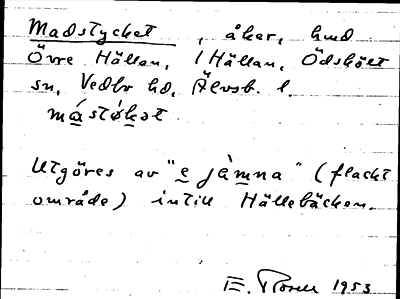 Madstycket, åker, hmd
Övre Hällan, /Hällan, Ödskölt
sn, Vedbo hd, Älvsb. l.
mástǿkət.
Utgöres av "e jàmna" (flackt
område) intill Hällebäcken.
E. 1953